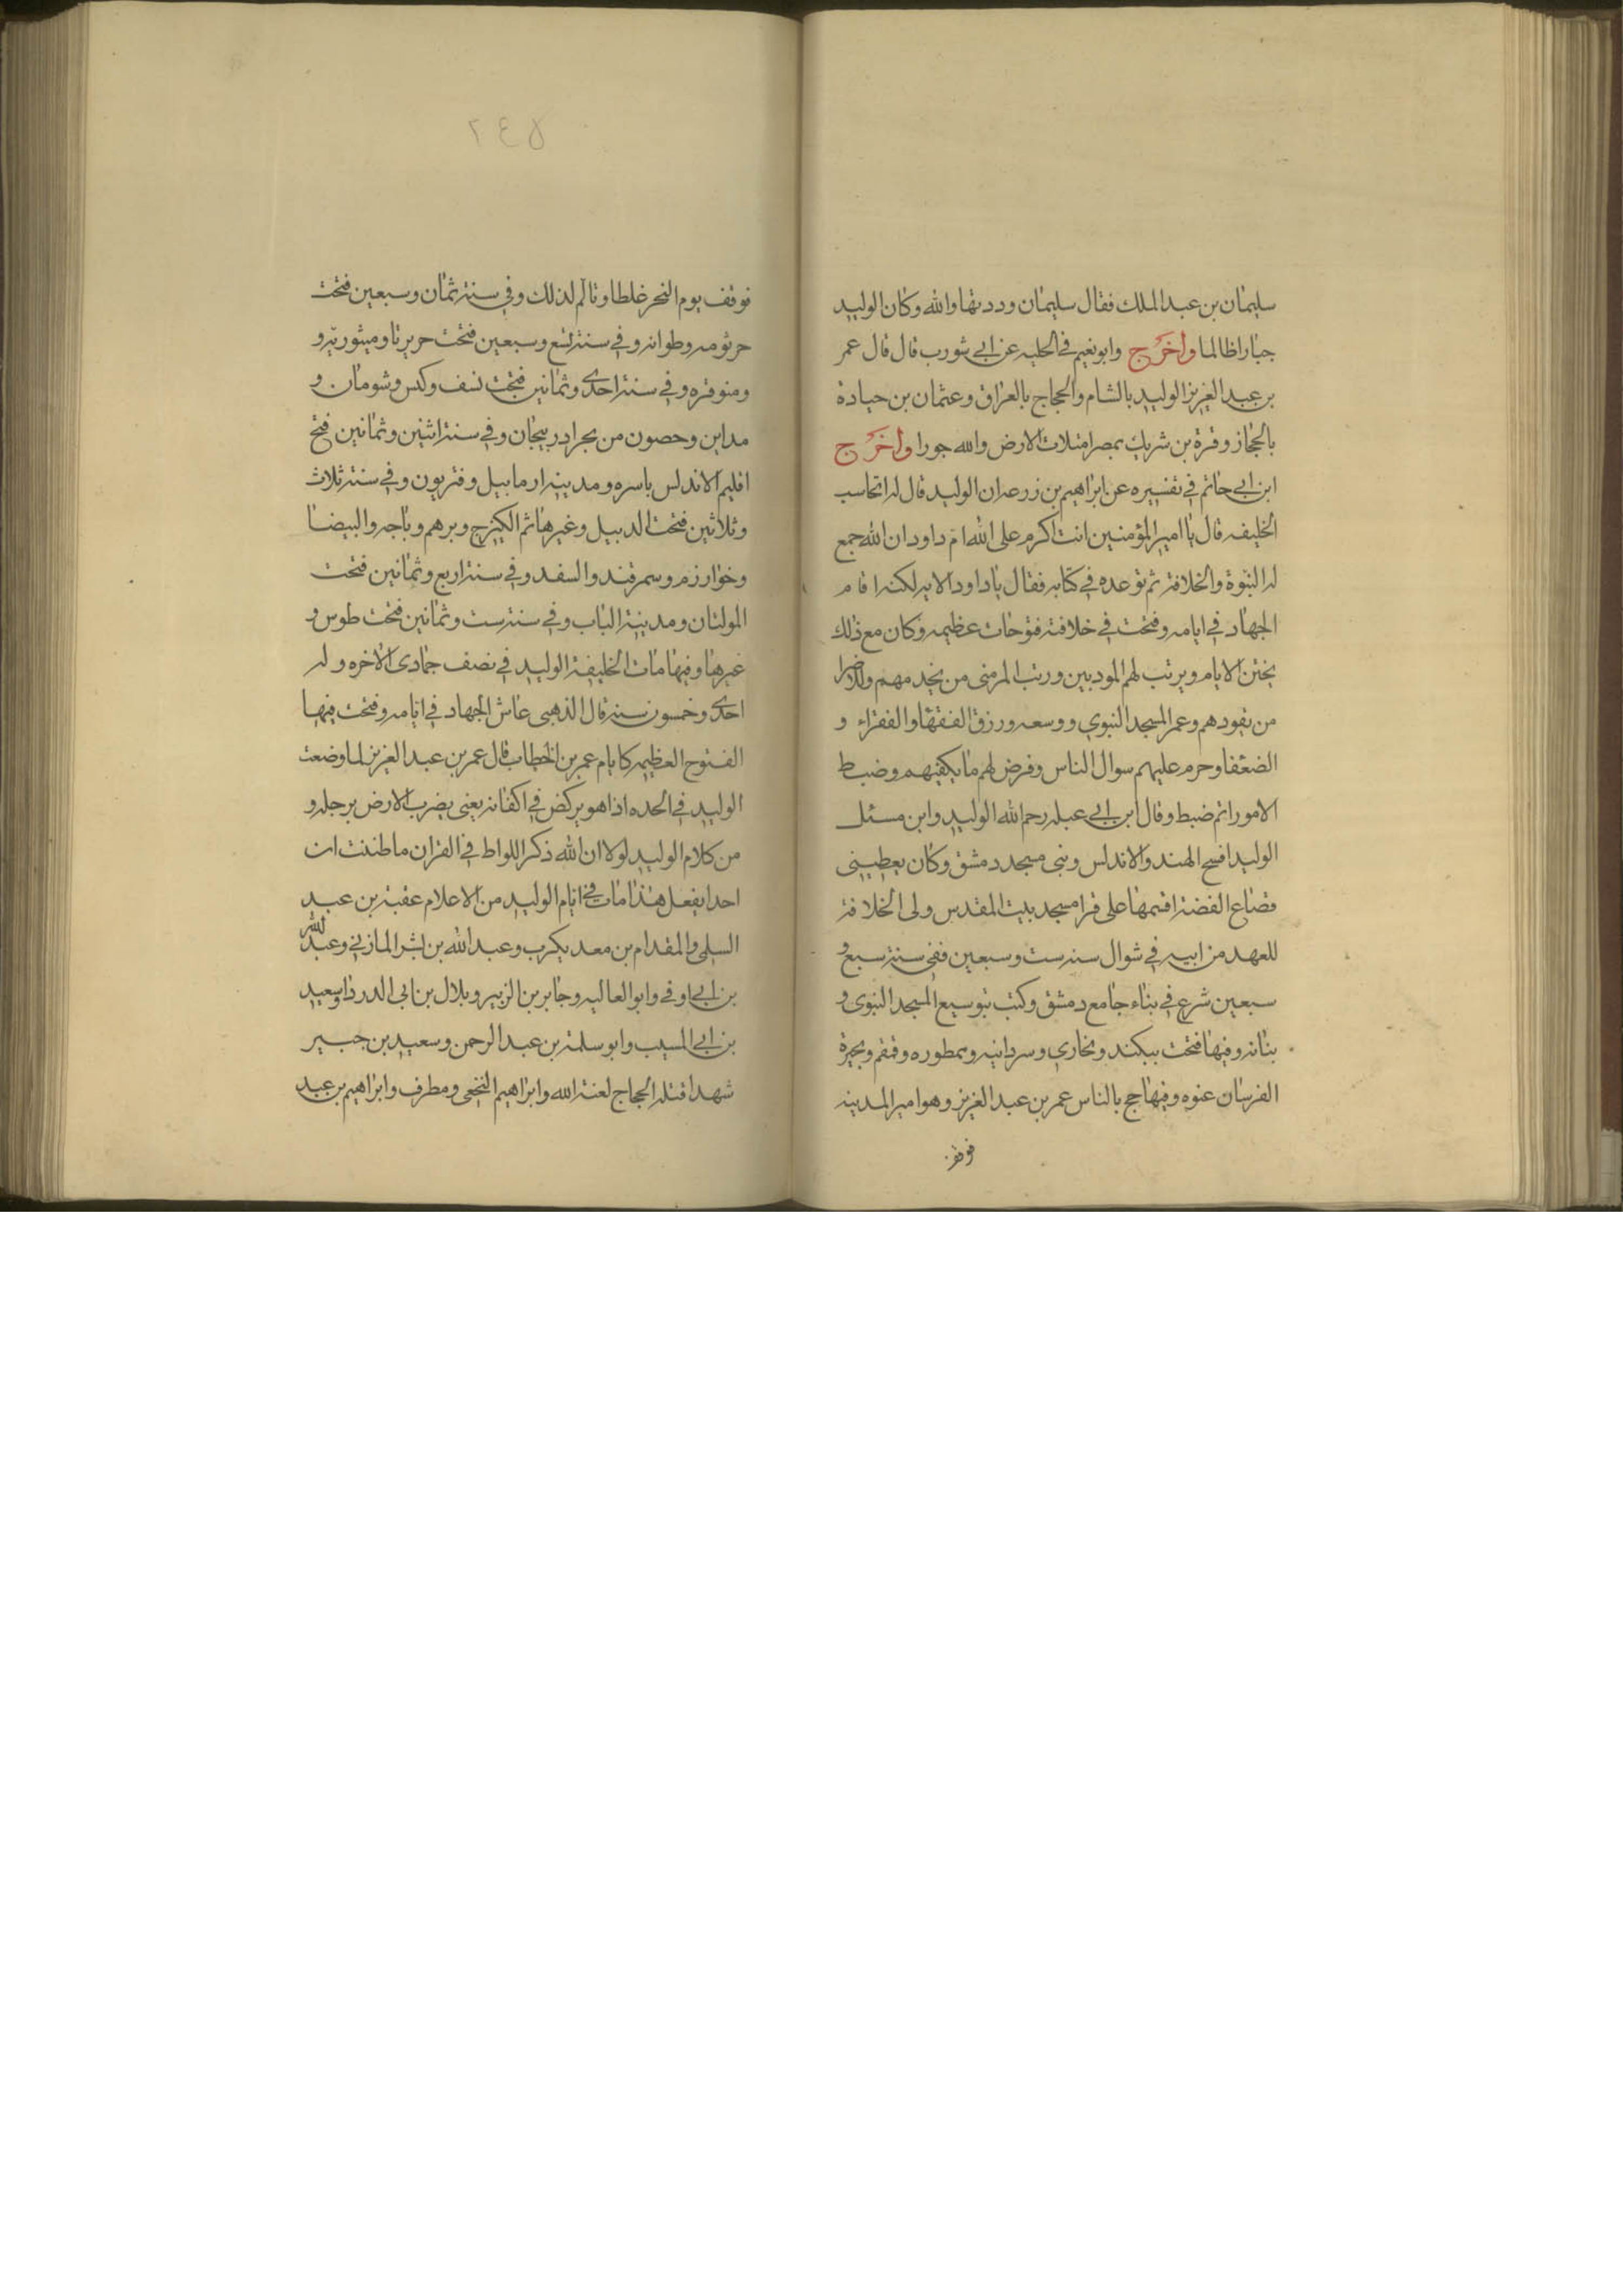 سليمان بن عبد الملك فقال سليمان ورددتها والله وكان الوليد
جبارا ظالما واخرج وابو نعيم في الحليه عن ابي شورب قال قال عمر
بن عبد العزيز الوليد بالشام والحجاج بالعراق وعثمان بن حيادة
بالحجاز وقرة بن شريك بمصر امتلات الارض والله جورا واخرج
ابن ابي حاتم في تفسيره عن ابراهيم بن زرعه ان الوليد قال له اتحاسب
الخليفه قال يا امير المؤمنين انت اكرم على الله ام داود ان الله جمع
له النبوة والخلافة ثم توعده في كتابه فقال يا داود الايه لكنه اقام
الجهاد في ايامه وفتحت في خلافته فتوحات عظيمه وكان مع ذلك
يختن الايام ويرتب لهم المودبين ورتب المرضى من يخدمهم وللاضرا
من يقودهم وعمر المسجد النبوي ووسعه ورزق الفقها والفقراء و
الضعفا وحرم عليهم سوال الناس وفرض لهم ما يكفيهم وضبط
الامور اتم ضبط وقال ابن ابي عبله رحم الله الوليد وابن مسئل
الوليد افسح الهند والاندلس وبنى مسجد دمشق وكان يعطيني
قصاع الفضة اقسمها على قرا مسجد بيت المقدس ولى الخلافة
للعهد من ابيه في شوال سنه ست وسبعين ففي سنة سبع و
سبعين شرع في بناء جامع دمشق وكتب بتوسيع المسجد النبوى و
بنانه وفيها فتحت بيكند وبخارى وسردانيه ومطوره وقمقم وبحيرة
الفرسان عنوه وفيها حج بالناس عمر بن عبد العزيز وهو امير المدينه
فوقف
٢٤٥
فوقف يوم النحر غلطا وتالم لذلك وفي سنة ثمان وسبعين فتحت
جرثومه وطوانه وفي سنة تسع وسبعين فتحت جزيرتا وميثورية و
ومنوقره وفي سنة احدى وثمانين فتحت نسف وكس وشومان و
مداين وحصون من بحر ادربيجان وفي سنة اثنين وثمانين فتح
اقليم الاندلس باسره ومدينه ارمابيل وقتربون وفي سنة ثلاث
وثلاثين فتحت الدبيل وغيرها ثم الكيرج وبرهم وباجه والبيضا
وخوارزم وسمرقند والسفد وفي سنة اربع وثمانين فتحت
المولتان ومدينة الباب وفي سنة ست وثمانين فتحت طوس و
غيرها وفيها مات الخليفة الوليد في نصف جمادى الاخره وله
احدى وخمسون سنه قال الذهبى عاش الجهاد في ايامه وفتحت فيها
الفتوح العظيمه كايام عمر بن الخطاب قال عمر بن عبد العزيز لما وضعت
الوليد في الحده اذا هو يركض في اكفانه يعنى يضرب الارض برجله و
من كلام الوليد لولا ان الله ذكر اللواط في القران ما ظننت ان
احدا يفعل هذا مات في ايام الوليد من الاعلام عقبة بن عبد
السلمى والمقدام بن معد يكرب وعبد الله بن بشر المازني وعبد الله
بن ابي اوفى وابو العاليه وجابر بن الزبير وبلال بن ابى الدردا وسعيد
بن ابي المسيب وابو سلمة بن عبد الرحمن وسعيد بن جبير
شهدا قتله الحجاج لعنة الله وابراهيم النخعى ومطرف وابراهيم بن عبد